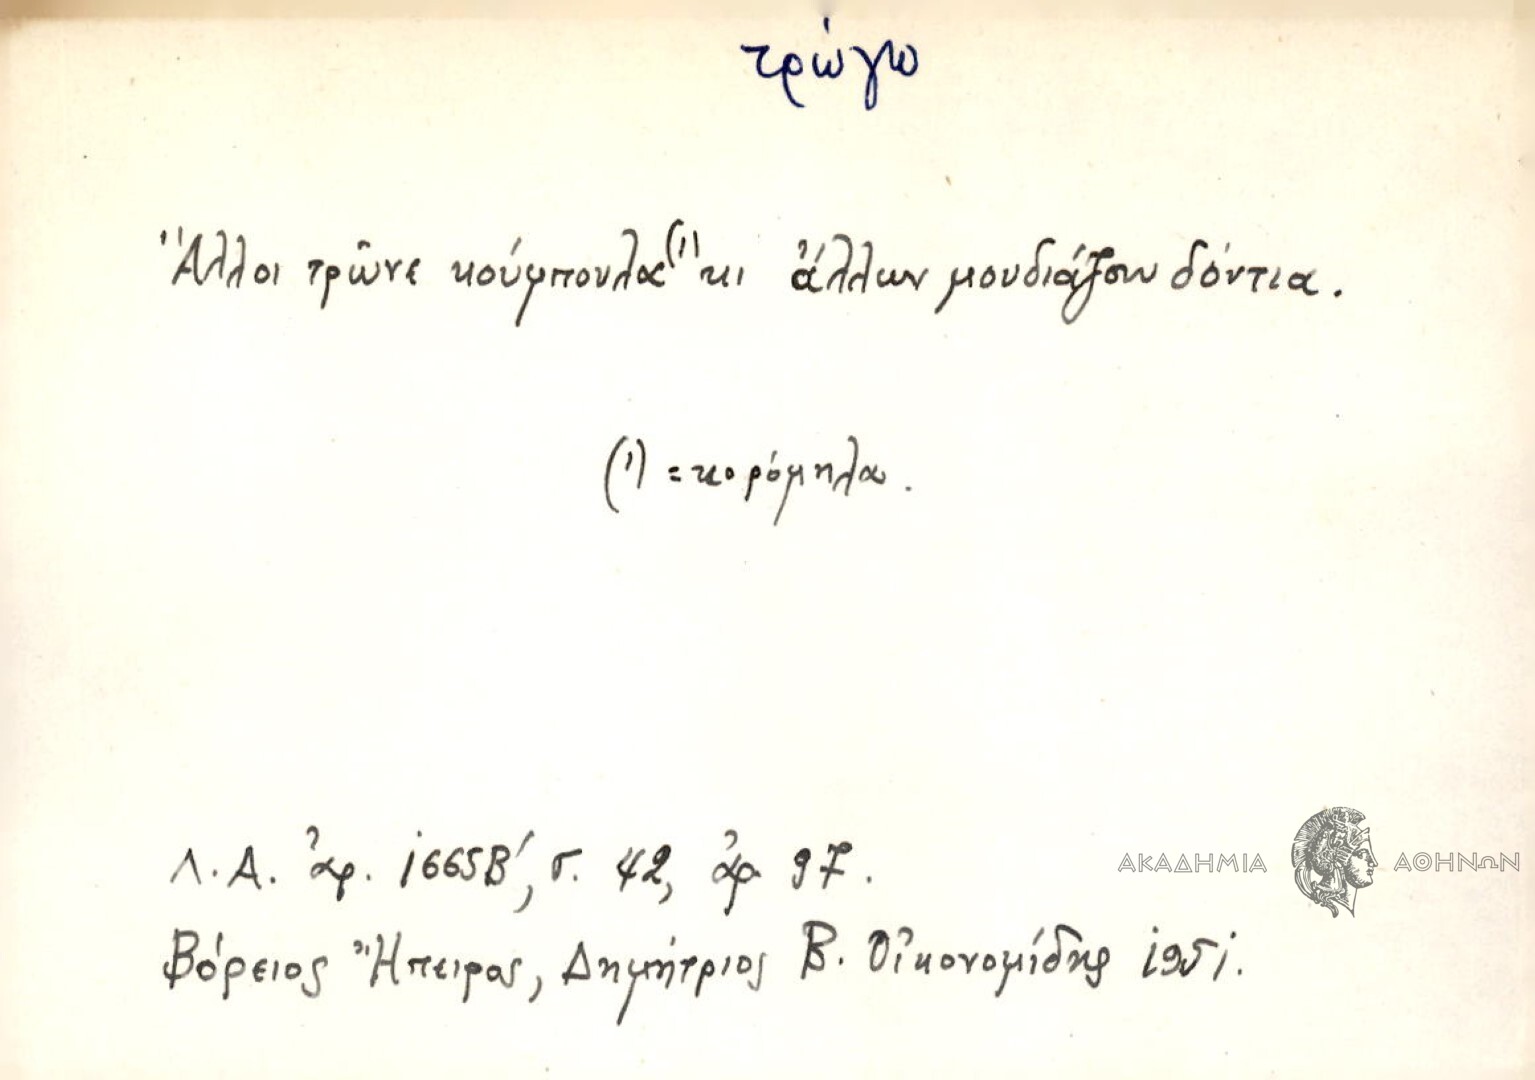 τρώγω
Ἄλλοι τρῶνε κούμπουλα(1) κι ἄλλων μουδιάζουν δόντια.
(1) = κορόμηλα.
Λ.Α. ἀρ. 1665Β', σ. 42, ἀρ 97.
ΑΚΑΔΗΜΙΑ ΑΘΗΝΩΝ
Βόρειος Ἤπειρος, Δημήτριος Β. Οἰκονομίδης 1951.